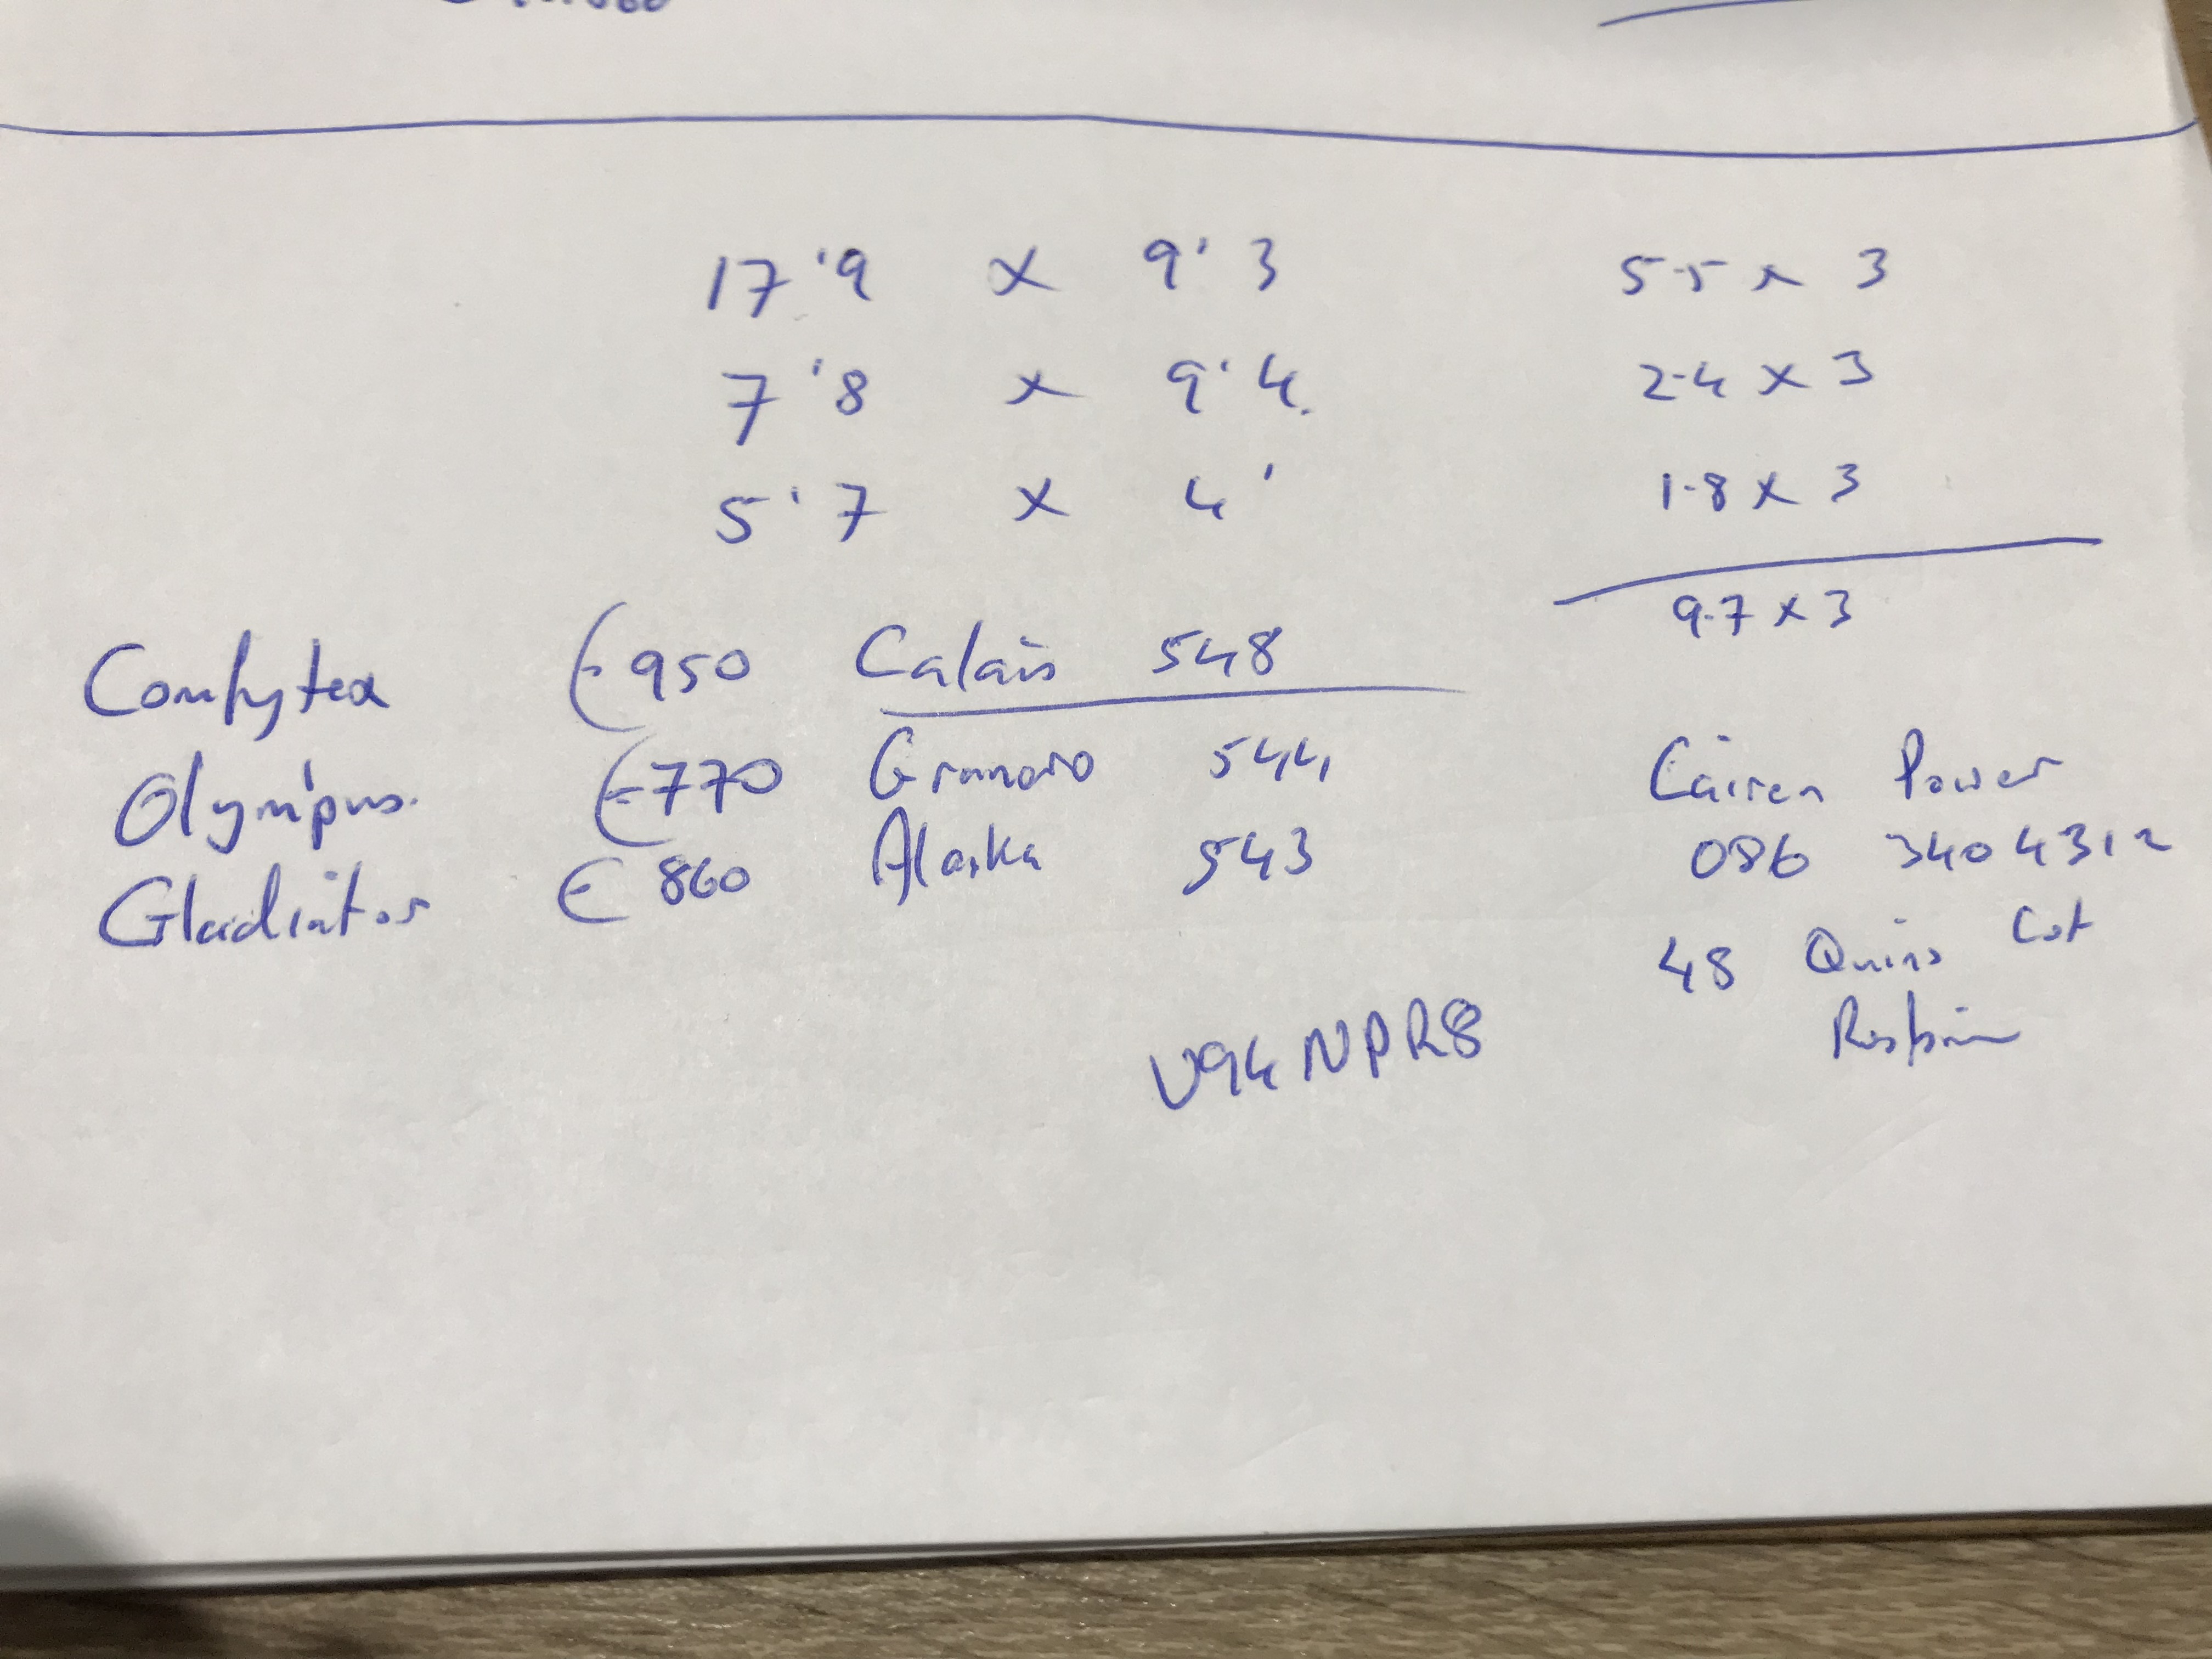 17'9 x 9'3 5.5 x 3
7'8 x 9'4. 2.4 x 3
5'7 x 4' 1.8 x 3
9.7 x 3
Comfytex €950 Calais 548
Olympus. €770 544
Gladiator €860 Alaska 543
Power
086 3404312
48 Quins Cot
V94NPR8